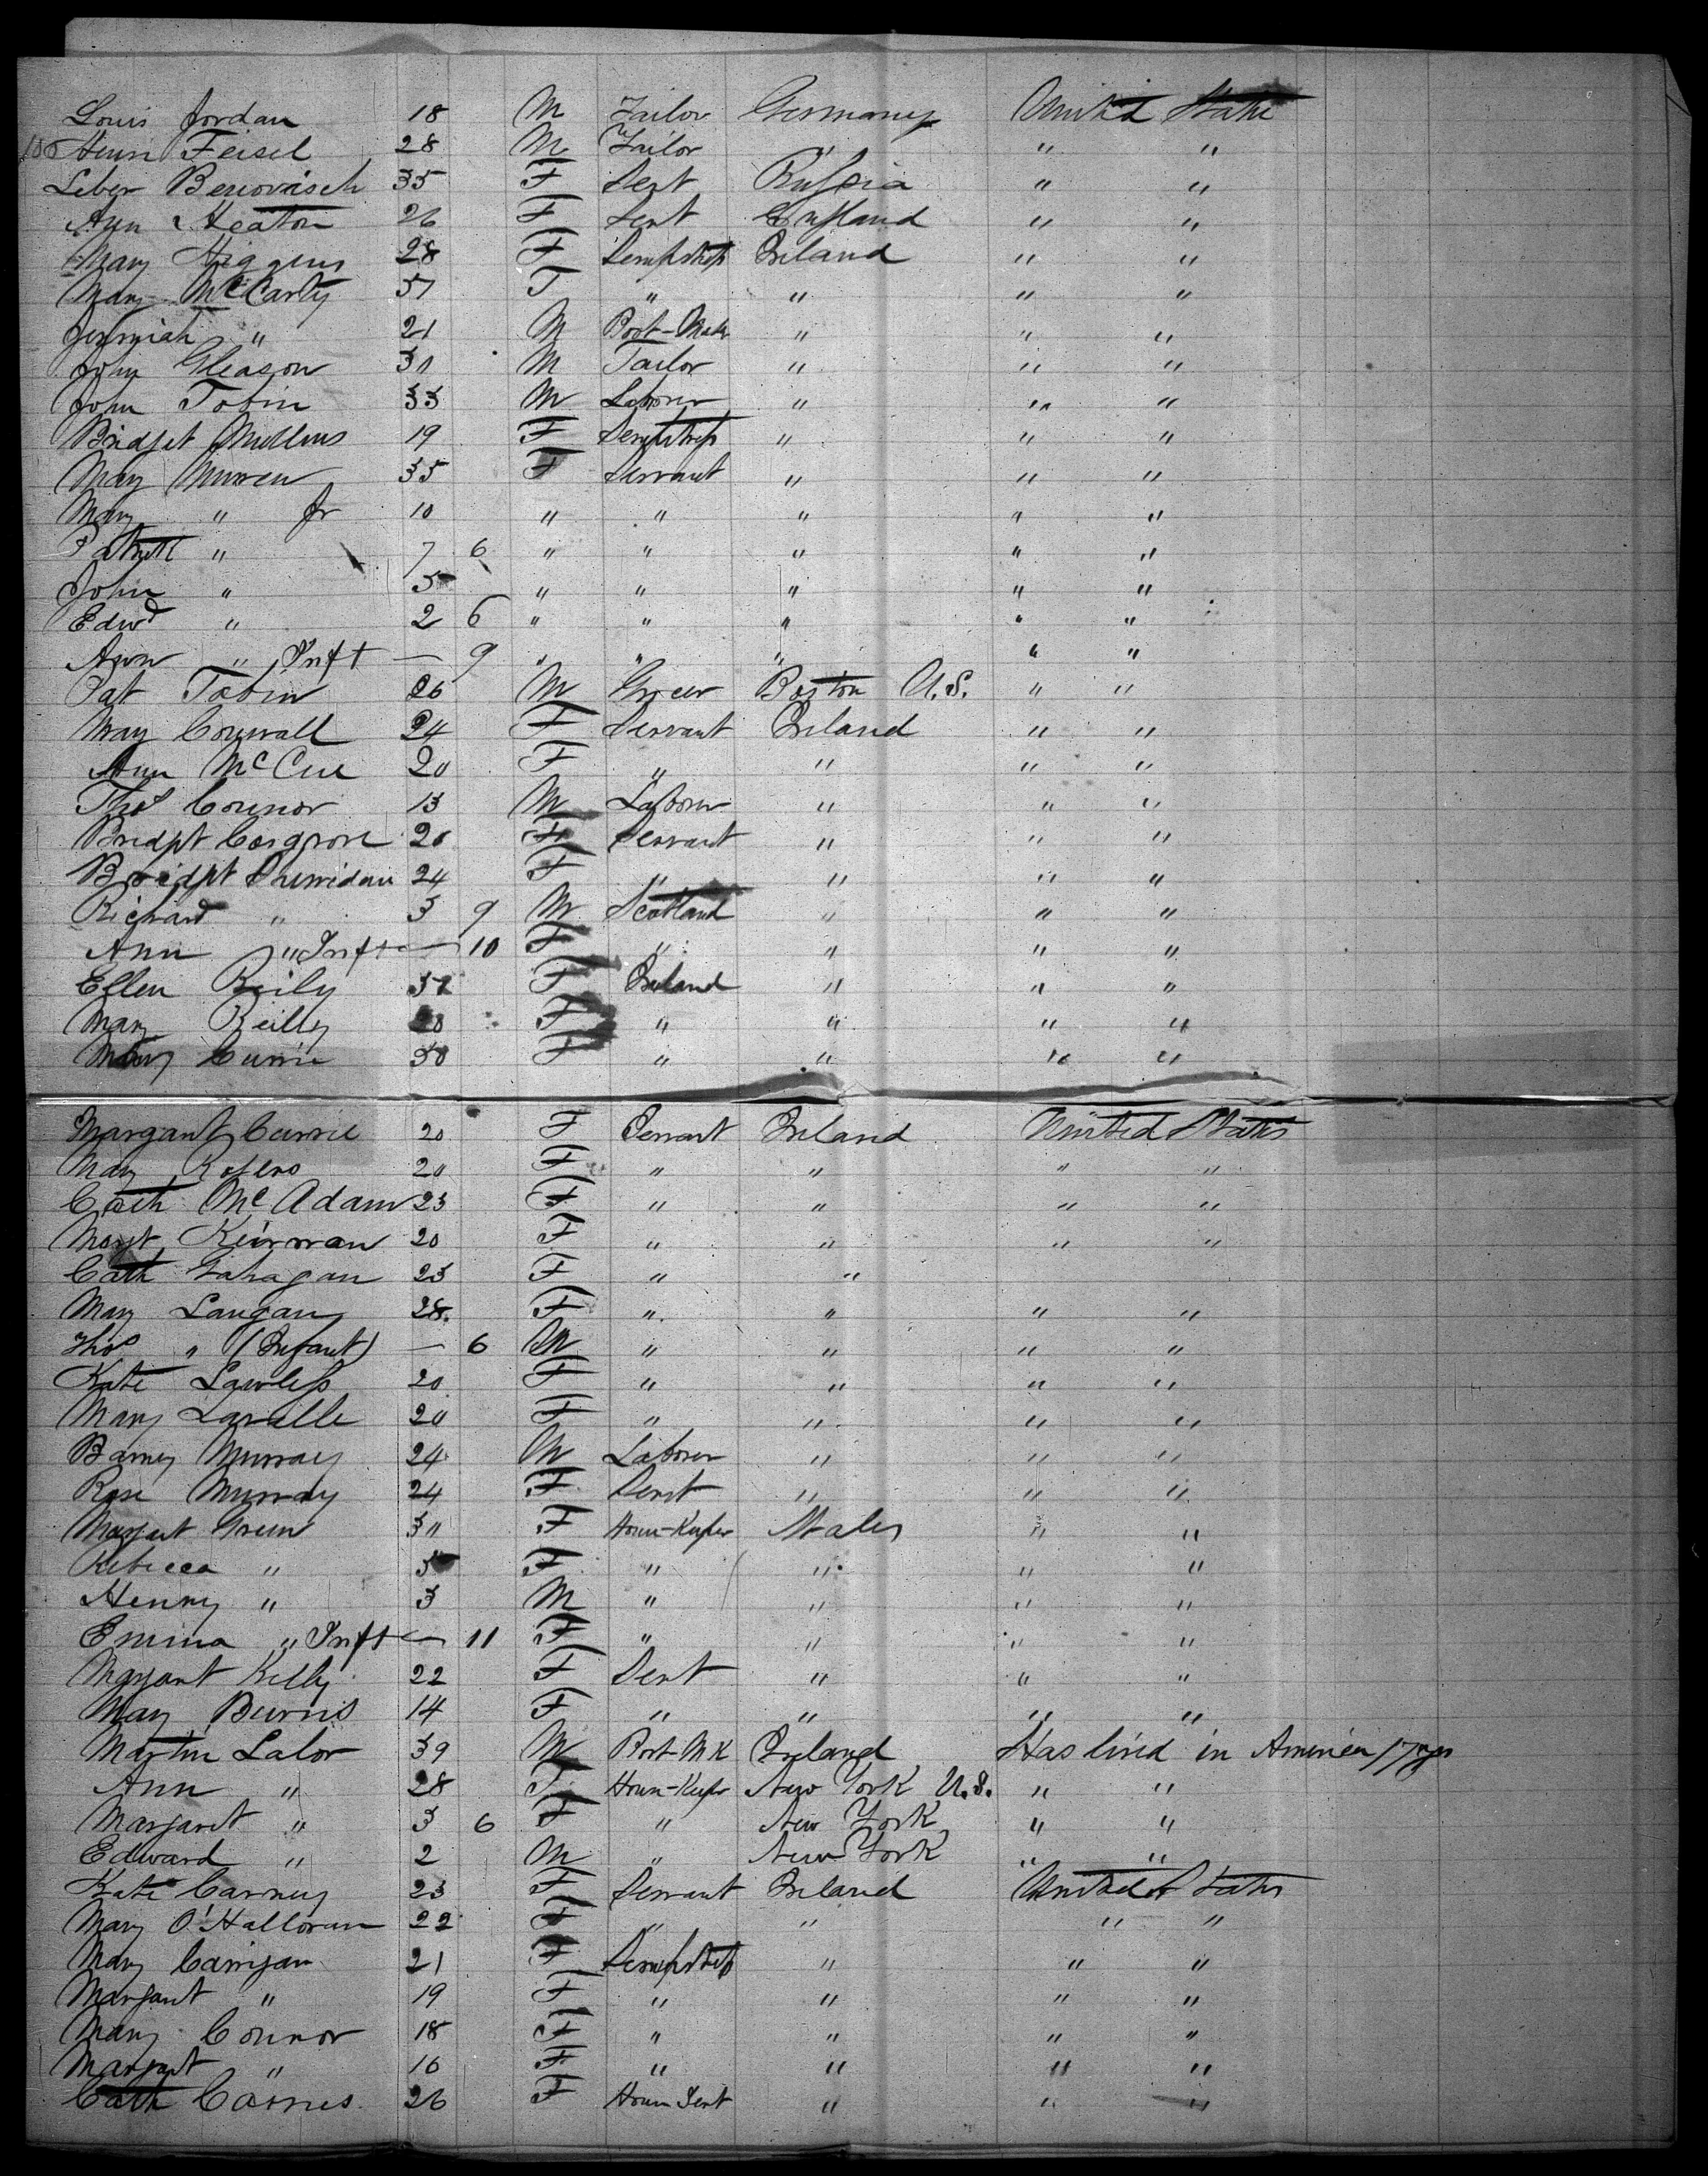 Louis Jordan 18 M Tailor Germany United State
100 Henri Feisel 28 M Tailor " " "
Leber Benovisch 35 F Sert Russia " "
Ann Heaton 26 F Sert England " "
Mary Higgins 28 F Sempstress Ireland " "
Mary McCarty 51 F " " " "
Jeremiah " 21 M Boot-Maker " " "
John Gleason 31 M Tailor " " "
John Tobin 33 M Laborer " " "
Bridget Mullens 19 F Sempstress " " "
Mary Murren 35 F Servant " " "
Mary " Jr 10 " " " " "
Patrick " 7 6 " " " " "
John " 5 " " " " "
Edwd " 2 6 " " " " "
Ann " Inft — 9 " " " " "
Pat Tobin 26 M Grocer Boston U.S. " "
Mary Cornwall 24 F Servant Ireland " "
Ann McCue 20 F " " " "
Thos Connor 13 M Laborer " " "
Bridgt Cosgrove 20 F Servant " " "
Bridgt Sherridan 24 F " " " "
Richard " 3 9 M Scotland " " "
Ann " Inft — 10 F " " " "
Ellen Reily 32 F Ireland " " "
Mary Reilly 20 F " " " "
Mary Currie 30 F " " " "
Margaret Currie 20 F Servant Ireland United States
Mary Rogers 20 F " " " "
Cath McAdam 23 F " " " "
Margt Keirnan 20 F " " " "
Cath Gahagan 23 F " "
Mary Langan 28. F " " " "
Thos " (Infant) — 6 M " " " "
Kate Lawless 20 F " " " "
Mary Lavelle 20 F " " " "
Barney Murray 24 M Laborer " " "
Rose Murray 24 F Servt " " "
Margaret Green 30 F House-Keeper Wales " "
Rebecca " 5 F " " " "
Henry " 3 M " " " "
Emma " Inft — 11 F " " " "
Margaret Kelly 22 F Sert " " "
Mary Burns 14 F " " " "
Martin Lalor 39 M Boot Mk Ireland Has lived in America 17 yrs
Ann " 28 F House-Keeper New York U.S. " "
Margaret " 3 6 F " New York " "
Edward " 2 M " New York " "
Kate Carney 23 F Servant Ireland United States
Mary O'Halloran 22 F " " " "
Mary Carrigan 21 F Sempstress " " "
Margaret " 19 F " " " "
Mary Connor 18 F " " " "
Margaret " 16 F " " " "
Cath Carnes 26 F House Sert " " "